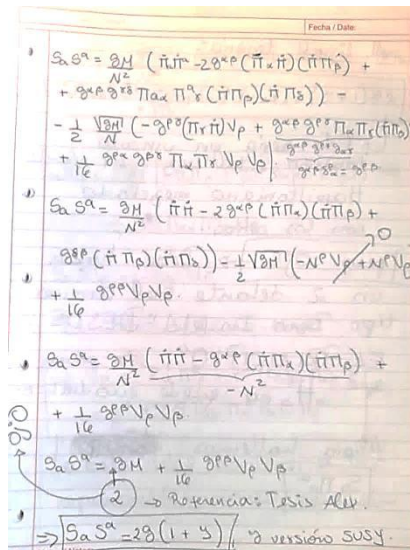 Fecha / Date:
SₐSᵃ = gM/N² (ṅṅᵃ - 2g^αβ (ṅ_αṅ)(ṅΠ_β) +
+ g^αβ g^γδ Πaα Πᵃγ (ṅΠβ)(ṅΠδ)) -
- 1/2 √gM/N (-g^ρσ (Πγṅ)Vρ + g^αβ g^ρσ ΠαΠγ(ṅΠδ)
+ 1/16 g^ρα g^ρσ ΠαΠγ Vρ Vρ | g^αβ g^ρσ gαγ
g^αρ δα = g^ρρ
SₐSᵃ = gM/N² (ṅṅ - 2g^αβ (ṅΠα)(ṅΠβ) +
g^δβ (ṅΠβ)(ṅΠδ)) = 1/2 √gM (-N^ρVρ + N^ρVρ 0
+ 1/16 g^ρρ VρVβ.
SₐSᵃ = gM/N² (ṅṅ - g^αβ (ṅΠα)(ṅΠβ) +
-N²
+ 1/16 g^ρρ VρVβ
SₐSᵃ = gM + 1/16 g^ρρ VρVβ
2 → Referencia: Tesis Alex.
⇒ SₐSᵃ = 2g(1 + y) // y versión SUSY.